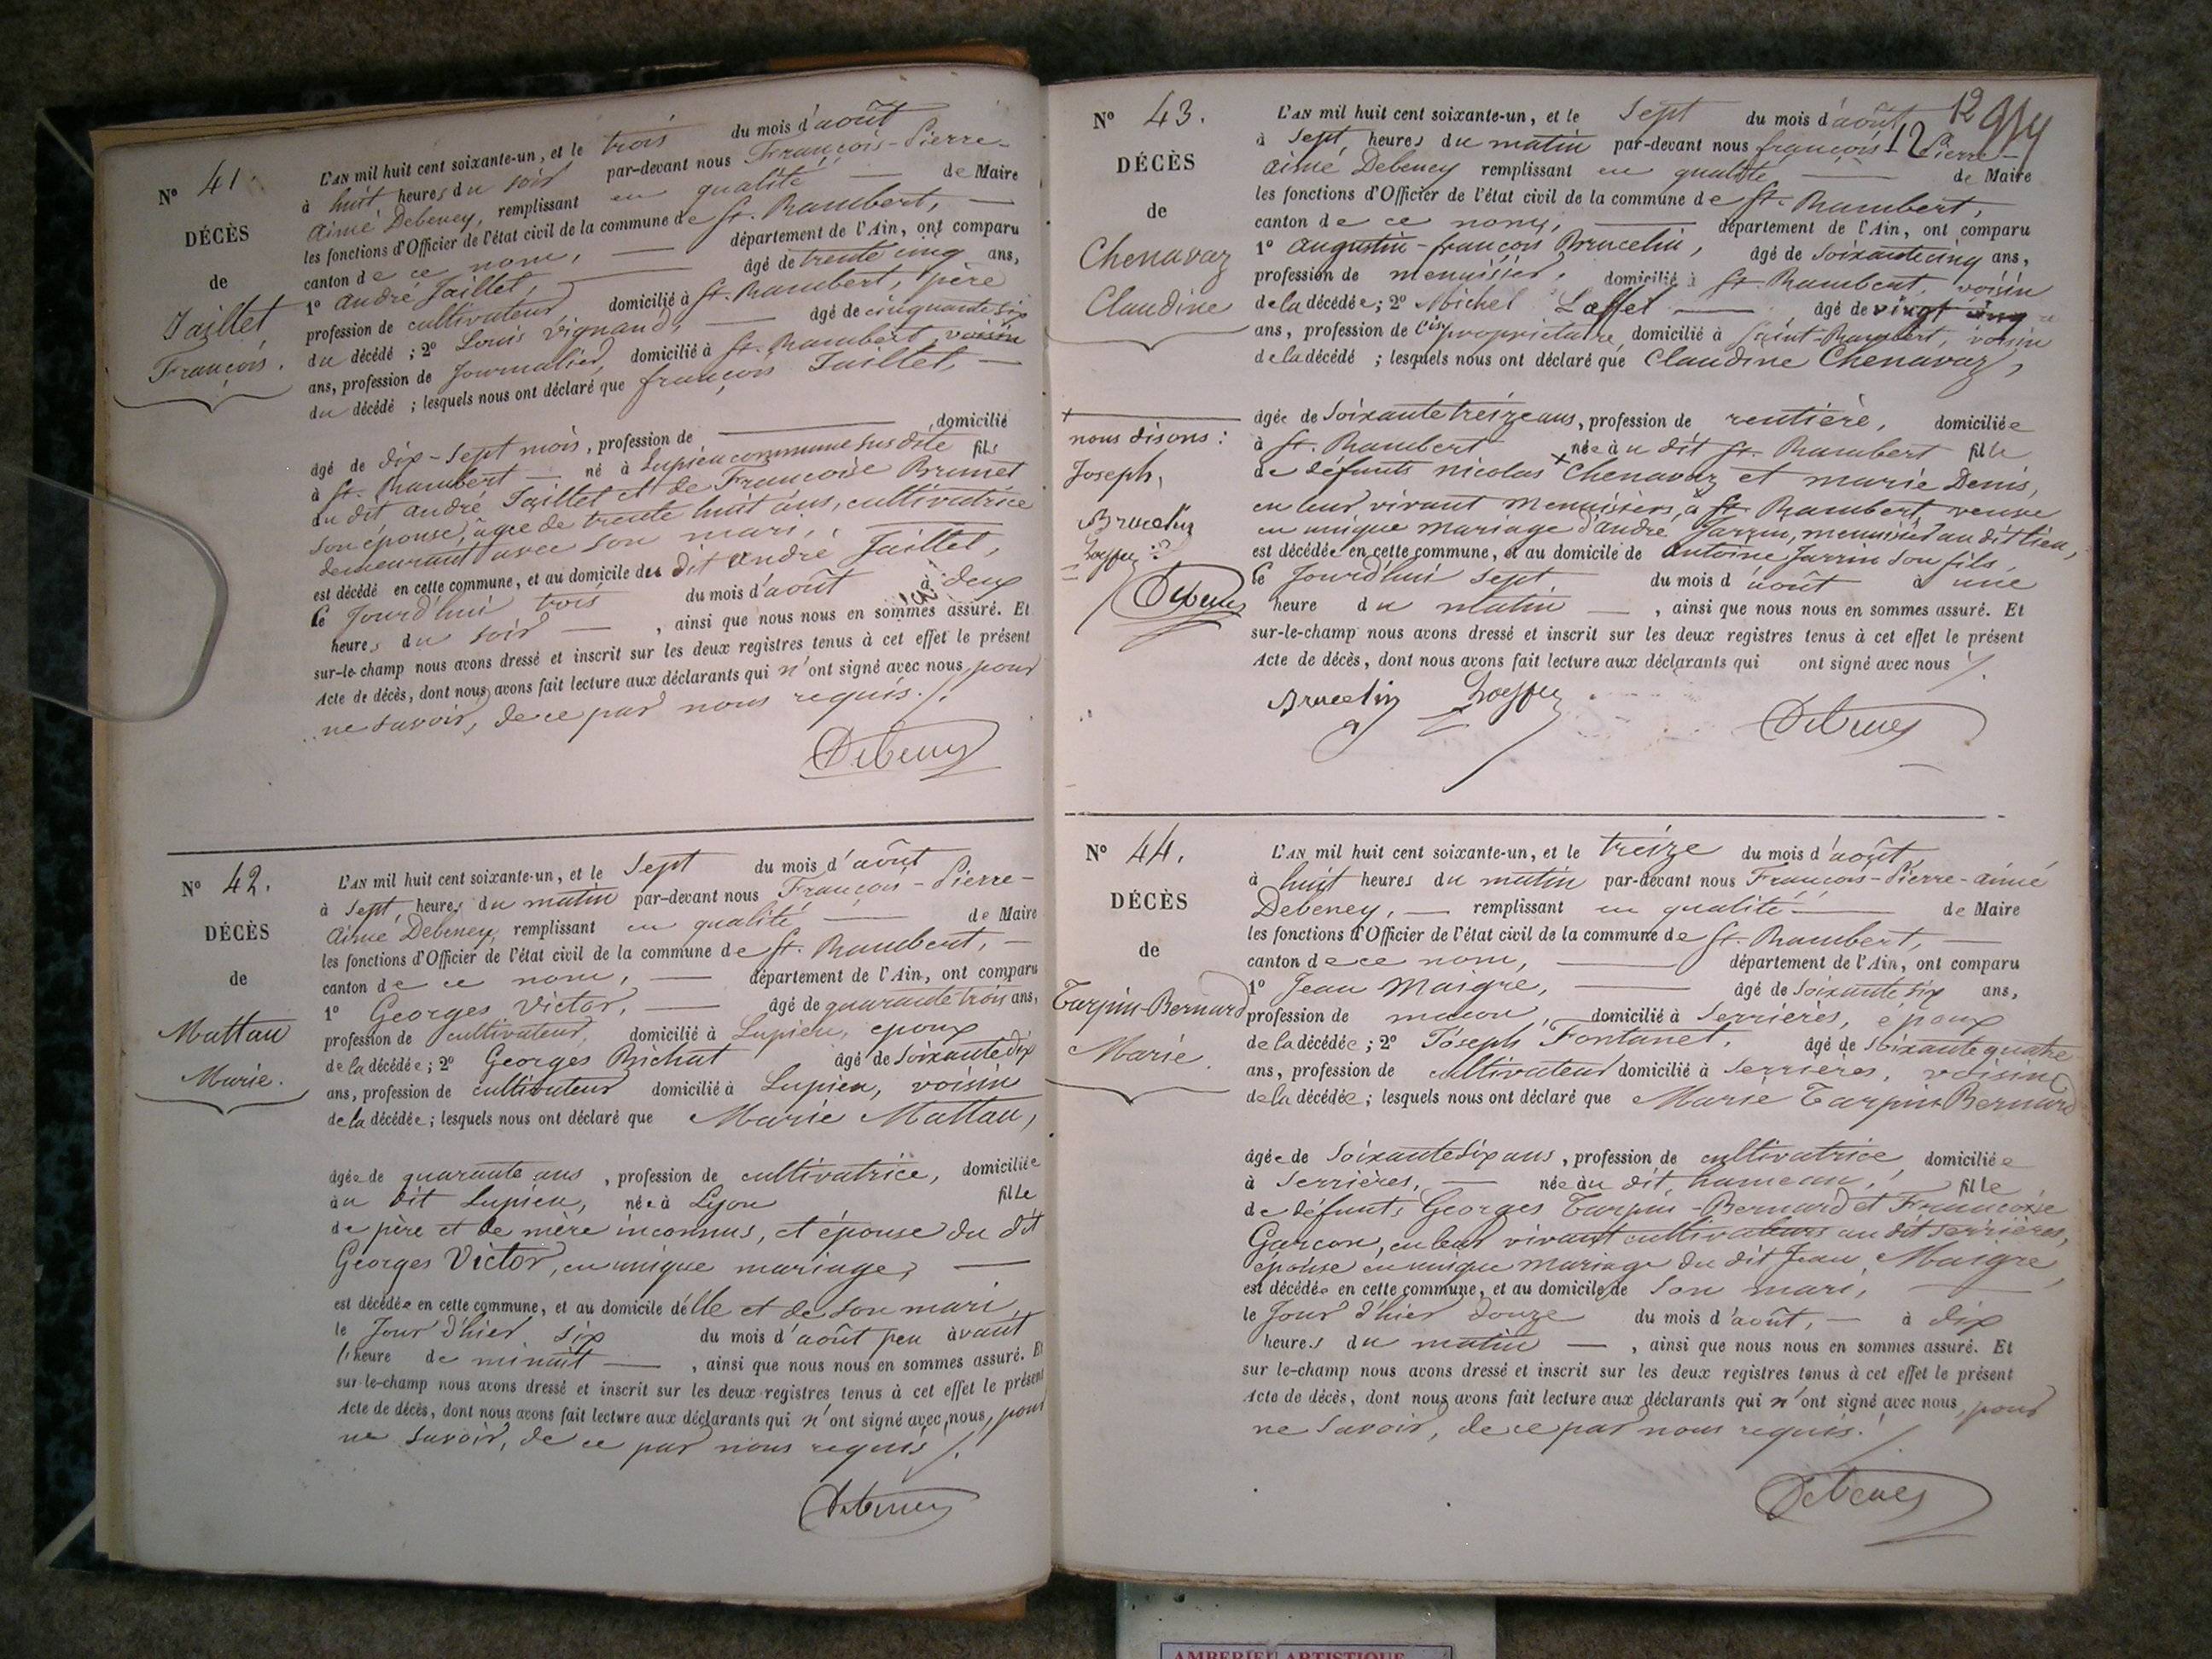 Nº 41.
DÉCÈS
de
Jaillet
François.
L'AN mil huit cent soixante-un, et le trois du mois d'août
à huit heures du soir par-devant nous François-Pierre-
Aimé Debeney, remplissant en qualité de Maire
les fonctions d'Officier de l'état civil de la commune de St. Rambert,
canton de ce nom, département de l'Ain, ont comparu
1º André Jaillet, âgé de trente cinq ans,
profession de cultivateur, domicilié à St. Rambert, père
du décédé ; 2º Louis Vignand, âgé de cinquante six
ans, profession de Journalier, domicilié à St. Rambert, voisin
du décédé ; lesquels nous ont déclaré que françois Jaillet,
âgé de dix-sept mois, profession de , domicilié
à St. Rambert né à Lupieu commune susdite fils
du dit André Jaillet et de Françoise Brunet
son épouse, âgée de trente huit ans, cultivatrice
demeurant avec son mari,
est décédé en cette commune, et au domicile des dit André Jaillet,
le Jourd'hui trois du mois d'août à deux
heures du soir , ainsi que nous nous en sommes assuré. Et
sur-le-champ nous avons dressé et inscrit sur les deux registres tenus à cet effet le présent
Acte de décès, dont nous avons fait lecture aux déclarants qui n'ont signé avec nous, pour
ne savoir, de ce par nous requis./.
Debeney
Nº 42.
DÉCÈS
de
Mattau
Marie.
L'AN mil huit cent soixante-un, et le Sept du mois d'août
à Sept, heures du matin par-devant nous François-Pierre-
Aimé Debeney, remplissant en qualité de Maire
les fonctions d'Officier de l'état civil de la commune de St. Rambert,
canton de ce nom, département de l'Ain, ont comparu
1º Georges Victor, âgé de quarante trois ans,
profession de cultivateur, domicilié à Lupieu, epoux
de la décédée ; 2º Georges Bichat âgé de soixante dix
ans, profession de cultivateur domicilié à Lupieu, voisin
de la décédée ; lesquels nous ont déclaré que Marie Mattau,
âgée de quarante ans , profession de cultivatrice, domiciliée
au dit Lupieu, née à Lyon fille
de père et de mère inconnus, et épouse du dit
Georges Victor, en unique mariage,
est décédée en cette commune, et au domicile d'elle et de son mari,
le Jour d'hier six du mois d'août peu avant
l'heure de minuit , ainsi que nous nous en sommes assuré. Et
sur-le-champ nous avons dressé et inscrit sur les deux registres tenus à cet effet le présent
Acte de décès, dont nous avons fait lecture aux déclarants qui n'ont signé avec nous, pour
ne savoir, de ce par nous requis./.
Debeney
12
12
Nº 43.
DÉCÈS
de
Chenavaz
Claudine
L'AN mil huit cent soixante-un, et le Sept du mois d'août
à Sept, heures du matin par-devant nous françois-Pierre-
Aimé Debeney remplissant en qualité de Maire
les fonctions d'Officier de l'état civil de la commune de St. Rambert,
canton de ce nom, département de l'Ain, ont comparu
1º Augustin-françois Brucelin, âgé de Soixante cinq ans,
profession de menuisier, domicilié à St. Rambert, voisin
de la décédée ; 2º Michel Loffel , âgé de vingt cinq
ans, profession de propriétaire, domicilié à Saint-Rambert, voisin
de la décédé ; lesquels nous ont déclaré que Claudine Chenavaz,
âgée de Soixante treize ans, profession de rentière, domiciliée
à St. Rambert née au dit St. Rambert fille
de défunts nicolas + Chenavaz et marie Denis,
en leur vivant menuisiers, à St. Rambert veuve
en unique mariage d'andré Jarrin, menuisier au dit lieu,
est décédée en cette commune, et au domicile de Antoine Jarrin son fils,
le Jourd'hui sept du mois d'août à une
heure du matin , ainsi que nous nous en sommes assuré. Et
sur-le-champ nous avons dressé et inscrit sur les deux registres tenus à cet effet le présent
Acte de décès, dont nous avons fait lecture aux déclarants qui ont signé avec nous ./.
+
nous disons :
Joseph,
Brucelin
Loeffer
Debeney
Brucelin Loeffer Debeney
Nº 44.
DÉCÈS
de
Tarpin-Bernard
Marie.
L'AN mil huit cent soixante-un, et le treize du mois d'août,
à huit heures du matin par-devant nous François-Pierre-aimé
Debeney, remplissant en qualité de Maire
les fonctions d'Officier de l'état civil de la commune de St. Rambert,
canton de ce nom, département de l'Ain, ont comparu
1º Jean Maigre, âgé de soixante six ans,
profession de macon, domicilié à Serrières, époux
de la décédée ; 2º Joseph Fontanet, âgé de soixante quatre
ans, profession de cultivateur domicilié à Serrières, voisin
de la décédée ; lesquels nous ont déclaré que Marie Tarpin Bernard
âgée de soixante six ans, profession de cultivatrice, domiciliée
à Serrières, née au dit hameau, fille
de défunts Georges Tarpin-Bernard et Françoise
Garcon, en leur vivant cultivateurs au dit Serrières,
épouse en unique mariage du dit Jean Maigre,
est décédée en cette commune, et au domicile de son mari,
le Jour d'hier douze du mois d'août, à dix
heures du matin , ainsi que nous nous en sommes assuré. Et
sur le-champ nous avons dressé et inscrit sur les deux registres tenus à cet effet le présent
Acte de décès, dont nous avons fait lecture aux déclarants qui n'ont signé avec nous, pour
ne savoir, de ce par nous requis./.
Debeney
AMBERIEU ARTISTIQUE